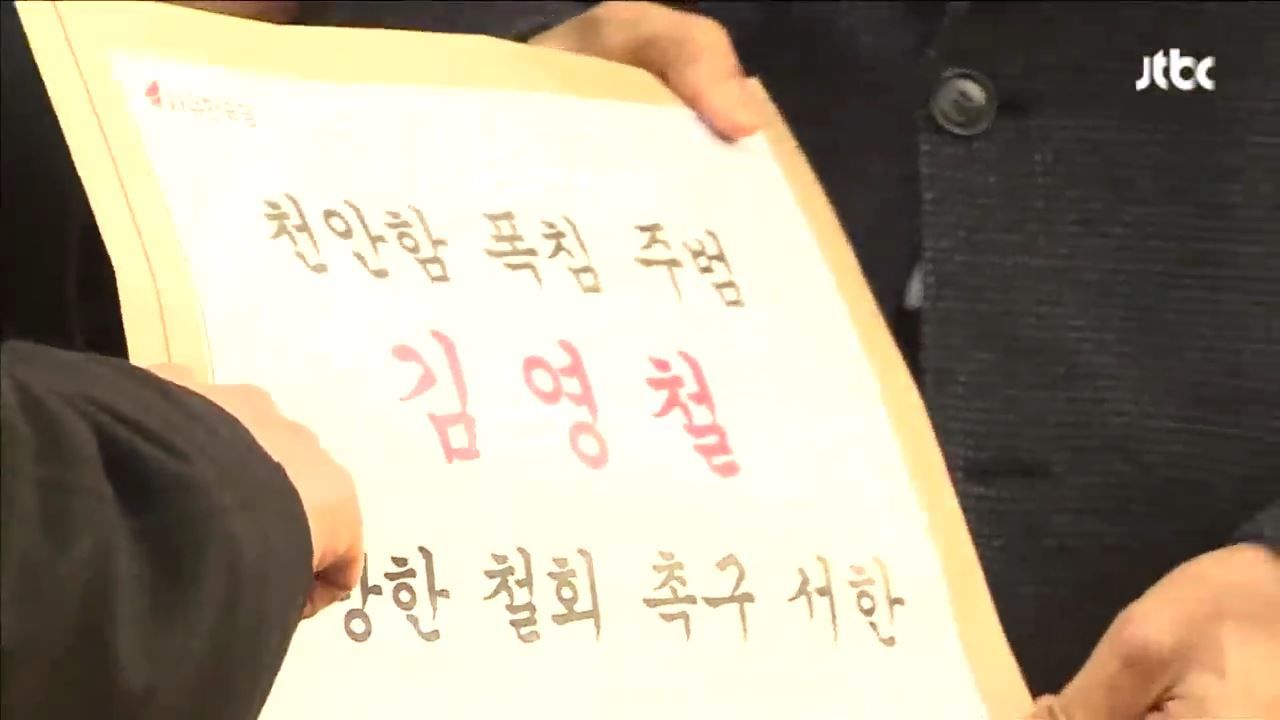 jtbc
자유한국당
천안함 폭침 주범
김영철
방한 철회 촉구 서한